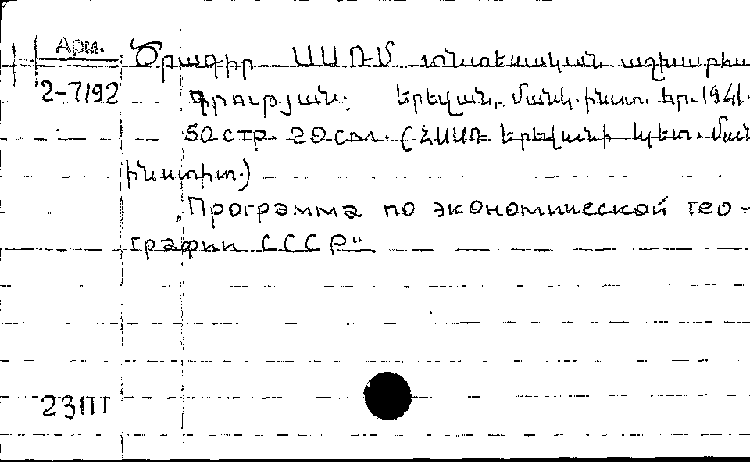 Арм.
Ծրագիր ՍՍՌՄ տնտեսական աշխարհա
2-7192
գրության: Երևան, Մանկ. ինստ. հր. 1941.
50 стр. 20 см. (ՀՍՍՌ Երևանի պետ. Ման
ինստիտ.)
„Программа по экономической гео-
графии СССР"
23ПП